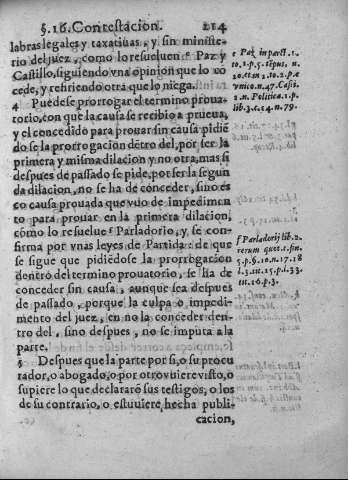 §.16. Contestacion. 214
labras legales y taxatiuas, y sin ministe-
rio del juez, como lo resueluen e Paz y
Castillo, siguiendo vna opinion que lo cō
cede, y refiriendo otra que lo niega.
4 Puedese prorrogar el termino proua-
torio, con que la causa se recibio a prueua,
y el concedido para prouar sin causa pidiē
do se la prorrogacion dētro del, por ser la
primera y misma dilacion y no otra, mas si
despues de passado se pide, por ser la segun
da dilacion, no se ha de conceder, sino es
cō causa prouada que vuo de impedimen
to para prouar en la primera dilacion,
como lo resuelue f Parladorio, y se con-
firma por vnas leyes de Partida: de que
se sigue que pidiēdose la prorrogacion
dentro del termino prouatorio, se ha de
conceder sin causa, aunque sea despues
de passado, porque la culpa o impedi-
mento del juez, en no la conceder den-
tro del, sino despues, no se imputa a la
parte.
5 Despues que la parte por si, o su procu
rador, o abogado, o por otro viuere visto, o
supiere lo que declararō sus testigos, o los
de su contrario, o estuuiere hecha publi-
cacion,
e Paz in part. 1.
to. 1. p. 5. tēpus, n.
20. et in 2. to. 2. p. c
vnico n. 47. Casti.
2. in Politica. 1. p.
lib. 3. c. 14. n. 79.
f Parladorij lib. 2.
rerum quot. c. fin.
5. p. §. 10. n. 17. 18
l. 3. tit. 15. p. l. 33.
tit. 16. p. 3.